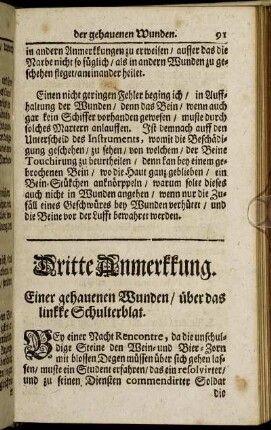 der gehauenen Wunden. 91
in andern Anmerkkungen zu erweisen / ausser das die
Narbe nicht so füglich / als in andern Wunden zu ge-
schehen pfleget / aneinander heilet.
Einen nicht geringen Fehler beging ich / in Auff-
haltung der Wunden / denn das Bein / wenn auch
gar kein Schiffer vorhanden gewesen / muste durch
solches Martern anlauffen. Ist demnach auff den
Unterscheid des Instruments, womit die Beschädi-
gung geschehen / zu sehen / von welchem / der Beine
Touchirung zu beurtheilen / denn kan bey einem ge-
brochenen Bein / wo die Haut ganz geblieben / ein
Bein-Stükchen anknörppeln / warum solte dieses
auch nicht in Wunden angehen / wenn nur die Zu-
fäll eines Geschwüres bey Wunden verhütet / und
die Beine vor der Lufft bewahret werden.
Dritte Anmerkkung.
Einer gehauenen Wunden / über das
linkke Schulterblat.
BEy einer Nacht Rencontre, da die unschul-
dige Steine den Wein- und Bier-Zorn
mit blossen Degen müssen über sich gehen las-
sen / muste ein Student erfahren / das ein resolvirter /
und zu seinen Diensten commendirter Soldat
die